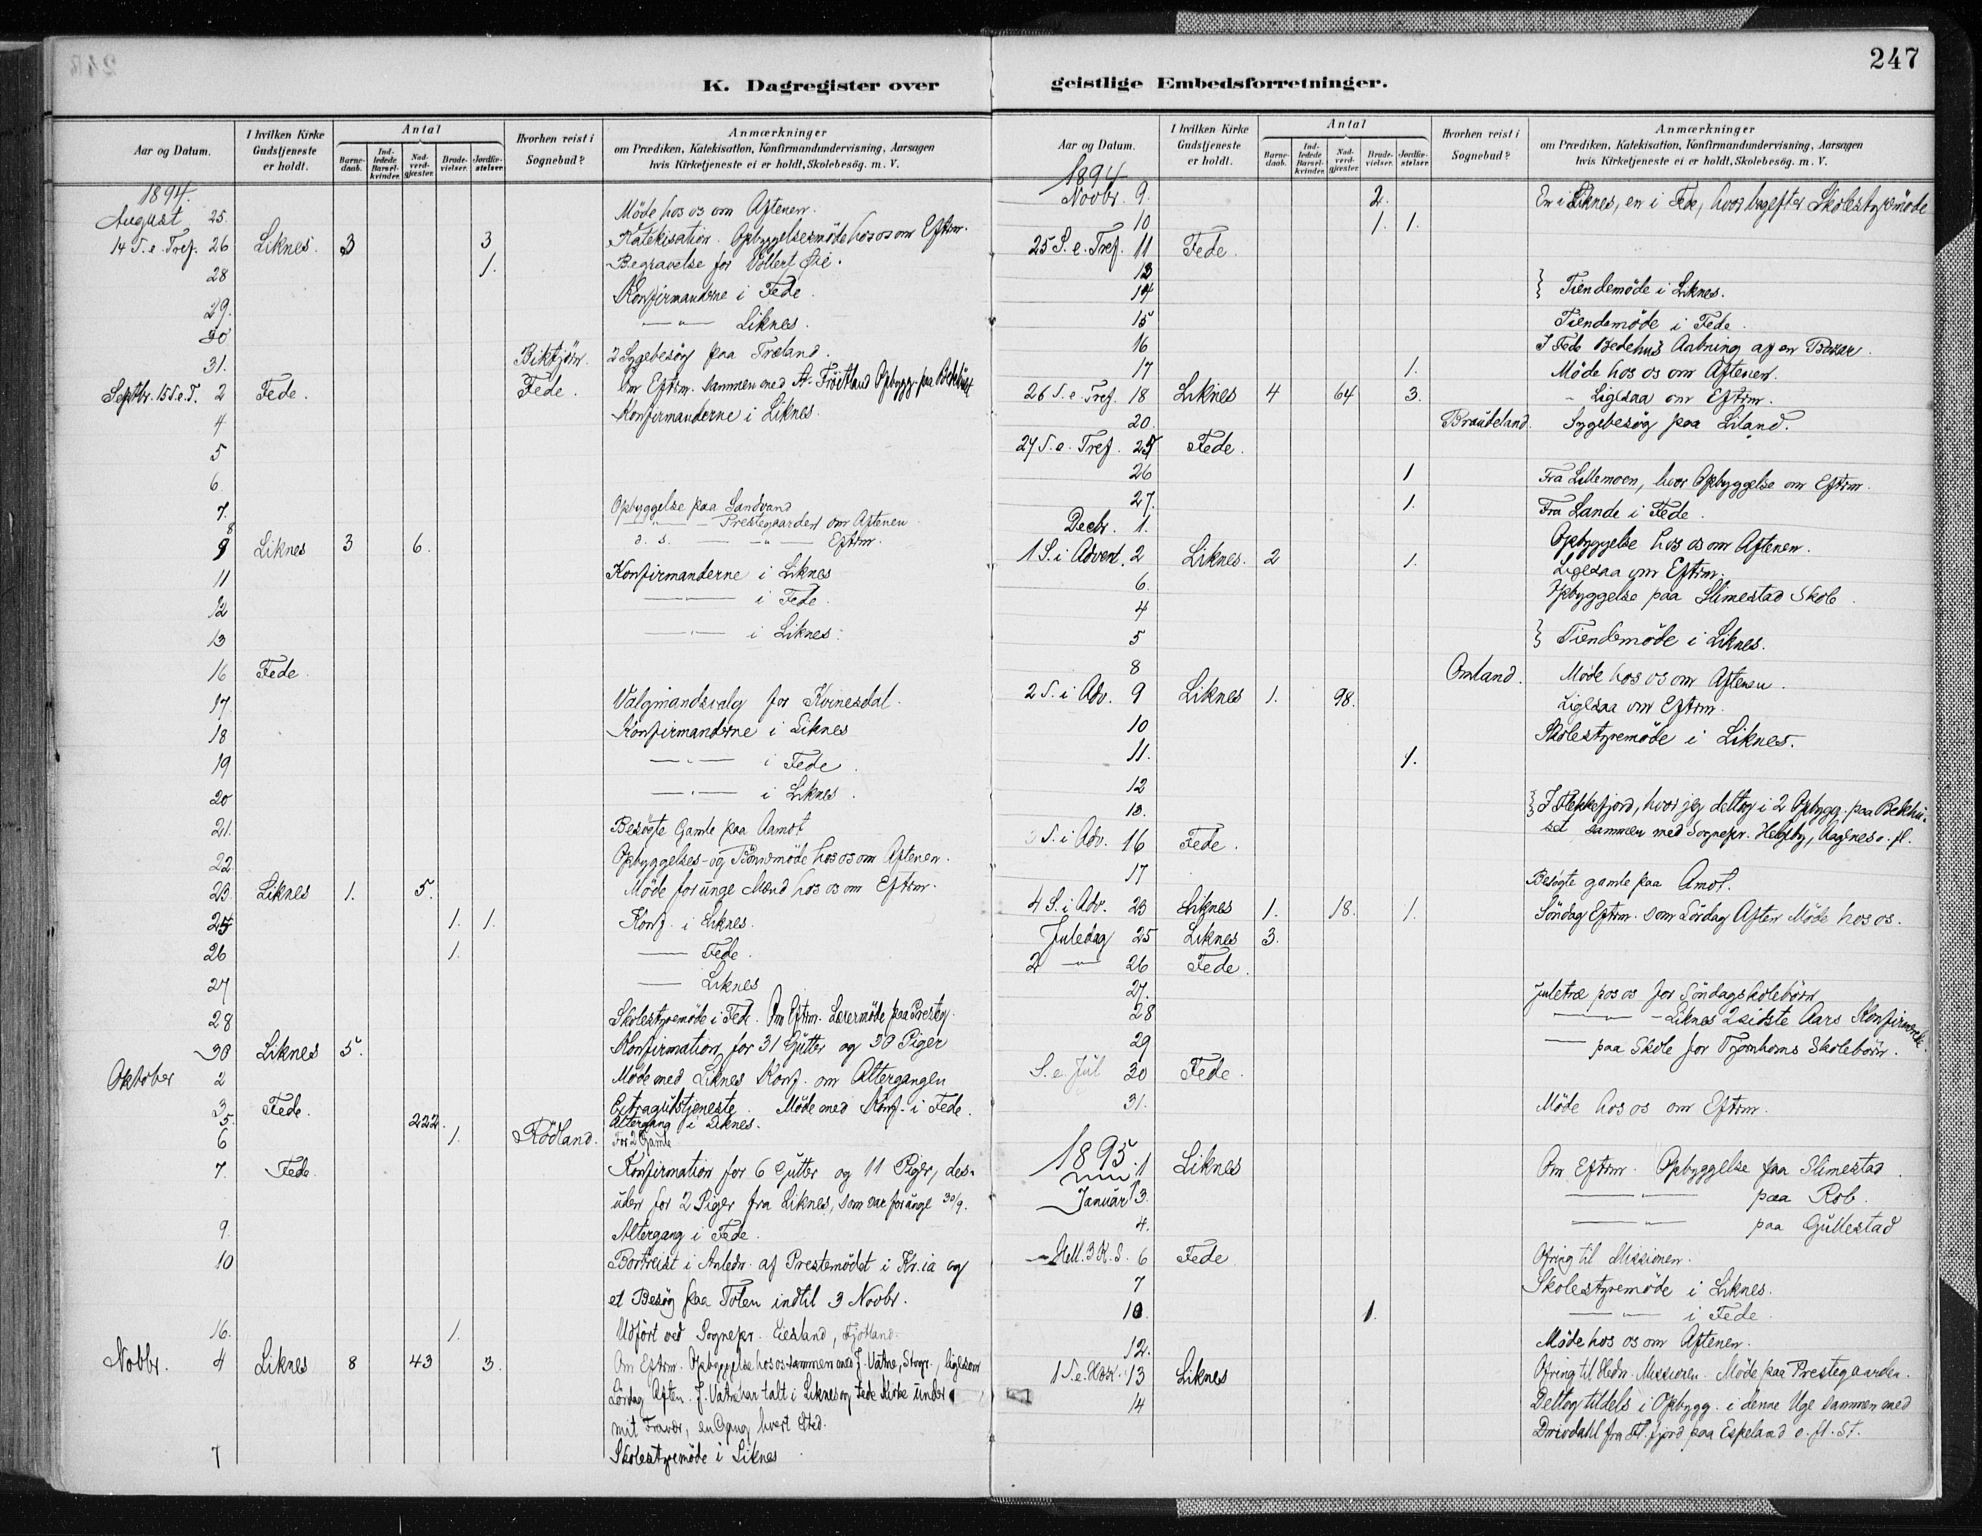 247
K. Dagregister over
Aar og Datum.
I hvilken Kirke Gudstjeneste er holdt.
Antal
Barne-daab.
Ind-ledede Barsel-kvinder.
Nad-verd-gjæster.
Brude-vielser.
Jordfæ-stelser.
Hvorhen reist i Sognebud?
Anmærkninger
om Prædiken, Katekisation, Konfirmandundervisning, Aarsagen
hvis Kirketjeneste ei er holdt, Skolebesøg. m. V.
1894.
August 25. Møde hos os om Aftenen.
14 S. e. Tref. 26 Liknes. 3 3 Katekisation. Opbyggelsesmøde hos os om Eftrm.
28 1. Begravelse for Vollert Øie.
Konfirmanderne i Fede.
29. — " — Liknes.
30
31. Biktjørn. 2 Sygebesøg paa Træland.
Septbr. 15 S. e. T. 2 Fede. Fede. Om Eftrm. sammen med A. Frøitland Opbygg. paa Bedehuset
4 Konfirmanderne i Liknes.
5
6
7. Opbyggelse paa Sandvand
8 — " — Prestegaarden om Aftenen
9 Liknes 3 6. d. s. — " — Eftrm.
11 Konfirmanderne i Liknes
12 — " — i Fede.
13 — " — i Liknes.
16 Fede.
17 Valgmandsvalg for Kvinesdal.
18 Konfirmanderne i Liknes
19 — " — i Fede.
20 — " — i Liknes.
21. Besøgte Gamle paa Aamot
22 Opbyggelses- og Bønnemøde hos os om Aftenen.
23 Liknes 1. 5. Møde for unge Mænd hos os om Eftrm.
25 1. 1. Konf. i Liknes.
26 1. — Fede.
27 — Liknes
28 Skolestyremøde i Fede. Om Eftrm. Lærermøde paa Presteg.
30 Liknes 5. Konfirmation for 31 Gutter og 30 Piger
Oktober 2 Møde med Liknes Konf. om Altergangen
3 Fede. Extragudstjeneste. Møde med Konf. i Fede.
5. 222. Altergang i Liknes.
6 1. Rødland. For 2 Gamle
7. Fede. Konfirmation for 6 Gutter og 11 Piger, des-
uden for 2 Piger fra Liknes, som var for unge 30/9.
9. Altergang i Fede.
10 Bortreist i Anledn. af Prestemødet i Kr.ia og
et Besøg paa Toten indtil 3 Novbr.
16. 1. Udført ved Sognepr. Eiesland, Fjotland.
Novbr. 4 Liknes 8 43 3. Om Eftrm. Opbyggelse hos os sammen med J. Vatne, Stvgr., ligesom
Lørdag Aften. J. Vatne har talt i Liknes og Fede Kirke under
mit Fravær, en Gang hvert Sted.
7 Skolestyremøde i Liknes
geistlige Embedsforretninger.
Aar og Datum.
I hvilken Kirke Gudstjeneste er holdt.
Antal
Barne-daab.
Ind-ledede Barsel-kvinder.
Nad-verd-gjæster.
Brude-vielser.
Jordfæ-stelser.
Hvorhen reist i Sognebud?
Anmærkninger
om Prædiken, Katekisation, Konfirmandundervisning, Aarsagen
hvis Kirketjeneste ei er holdt, Skolebesøg. m. V.
1894
Novbr. 9. 2. En i Liknes, en i Fede, hvor bagefter Skolestyremøde
10 1. 1.
25 S. e. Tref. 11 Fede.
13
14 } Tiendemøde i Liknes.
15 Tiendemøde i Fede.
16 I Fede Bedehus Aabning af en Bazar.
17 1. Møde hos os om Aftenen.
26 S. e. Tref. 18 Liknes 4 64 3. Ligesaa om Eftrm.
20. Sygebesøg paa Liland.
27 S. e. Tref. 25 Fede.
26 1 Fra Lillemoen, hvor Opbyggelse om Eftrm.
27. 1. Fra Lande i Fede.
Decbr. 1. Opbyggelse hos os om Aftenen.
1 S. i Advent. 2 Liknes. 2 1. Ligesaa om Eftrm.
6. Opbyggelse paa Slimestad Skole.
4
5 } Tiendemøde i Liknes.
8 Omland. Møde hos os om Aftenen.
2 S. i Adv. 9 Liknes 1. 98. Ligesaa om Eftrm.
10 Skolestyremøde i Liknes.
11. 1.
12
13. } I Flekkefjord, hvor jeg deltog i 2 Opbygg. paa Bedehu-
set sammen med Sognepr. Hedby, Aagenes o. fl.
3 S. i Adv. 16 Fede.
17 Besøgte gamle paa Amot.
4 S. i Adv. 23 Liknes 1. 18. 1. Søndag Eftrm. som Lørdag Aften Møde hos os.
Juledag 25 Liknes 3.
2 — " — 26 Fede.
27. Juletræ hos os for Søndagsskolebørn
28 — " — Liknes 2 sidste Aars Konfirmerede.
29 — paa Skole for Tjomhoms Skolebørn.
S. e. Jul 30 Fede.
31. Møde hos os om Eftrm.
1895. 1 Liknes Om Eftrm. Opbyggelse paa Slimestad
Januar 3. — " — paa Rob.
4. — " — paa Gullestad
Hell. 3 K. S. 6 Fede Ofring til Missionen.
7 Skolestyremøde i Liknes.
10 1. — " — i Fede.
12. Møde hos os om Aftenen.
1 S. e. H3K. 13 Liknes Ofring til Hedn. Missionen. Møde paa Prestegaarden.
14 Deltog tildels i Opbygg. i denne Uge sammen med
Drivdahl fra Fl.fjord paa Espeland o. fl. St.